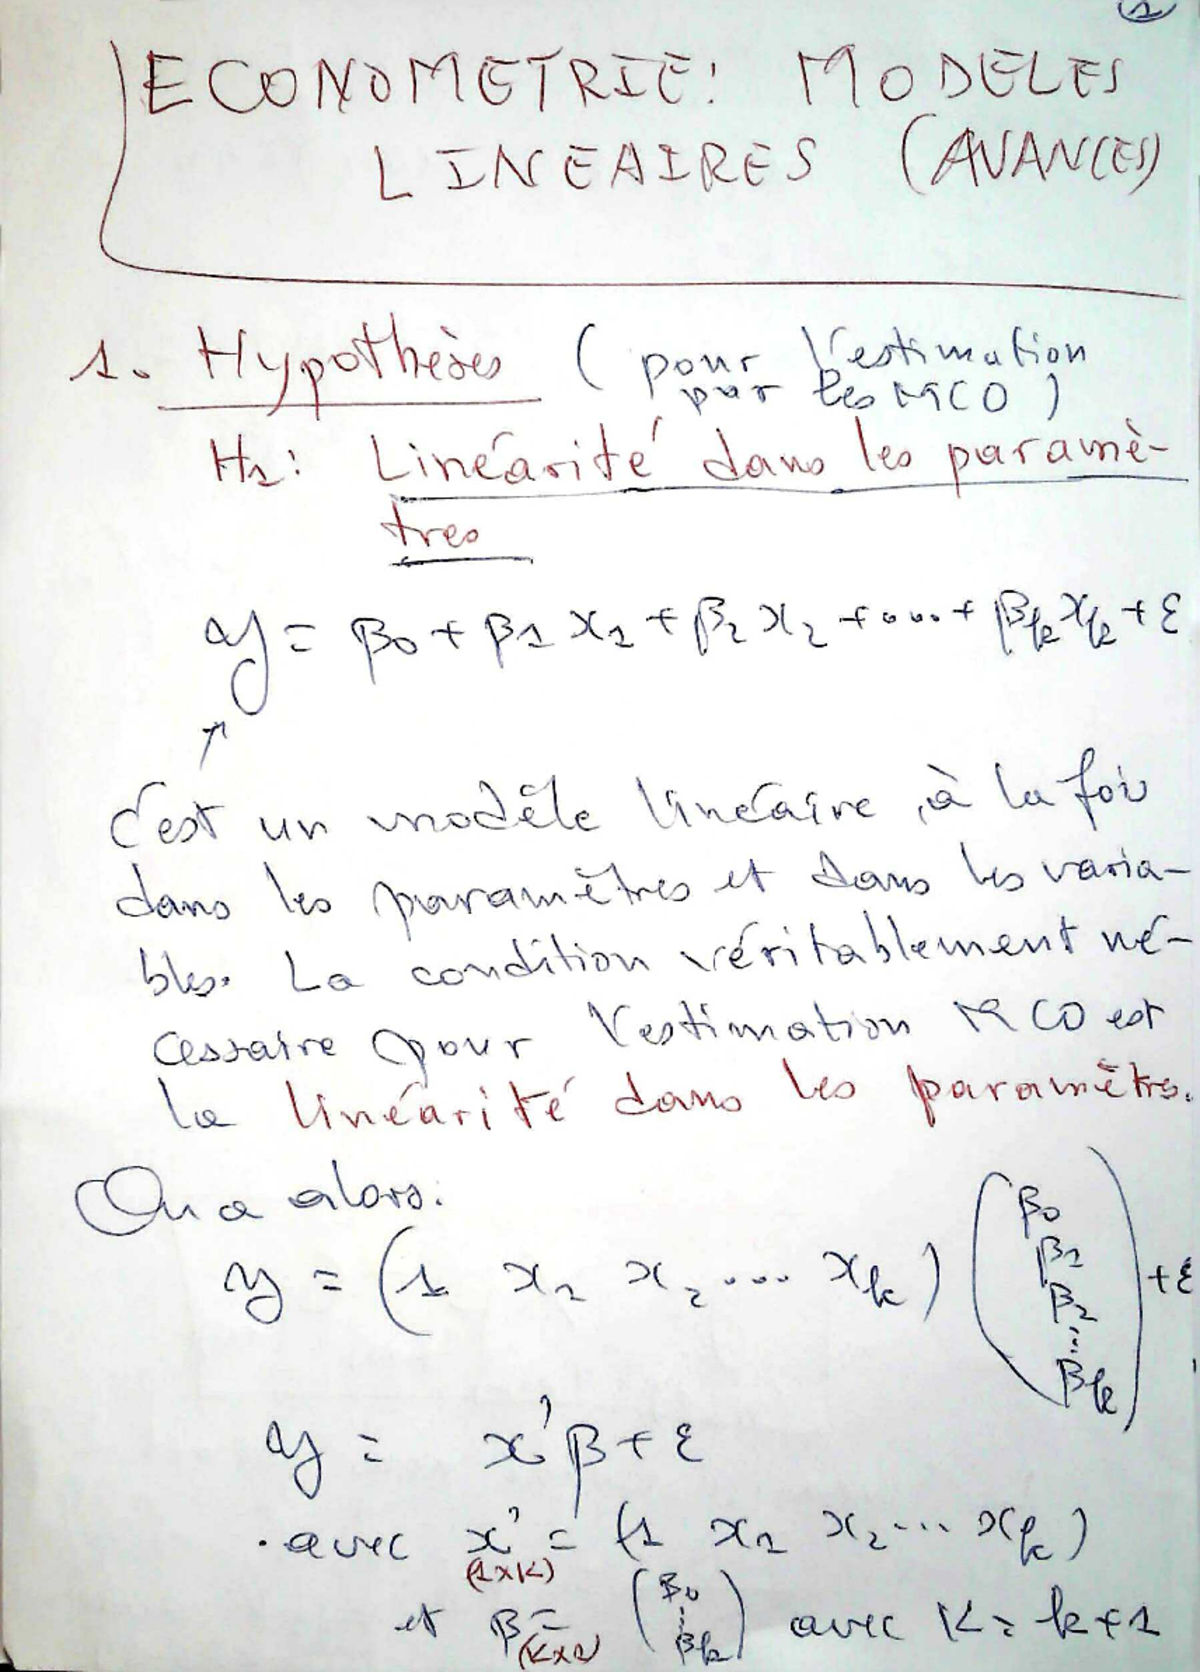 1
ECONOMETRIE: MODELES
LINEAIRES (AVANCES)
1. Hypothèses (pour l'estimation
par les MCO)
H1: Linéarité dans les paramè-
tres
y = β0 + β1 x1 + β2 x2 + ... + βk xk + ε
↗
C'est un modèle linéaire, à la fois
dans les paramètres et dans les varia-
bles. La condition véritablement né-
cessaire pour l'estimation MCO est
la linéarité dans les paramètres.
On a alors:
y = (1 x1 x2 ... xk) (β0 β1 β2 ... βk) + ε
y = x'β + ε
. avec x' = (1 x1 x2 ... xk)
(1×K)
et β = (β0 ⋮ βk) avec K = k+1
(K×1)